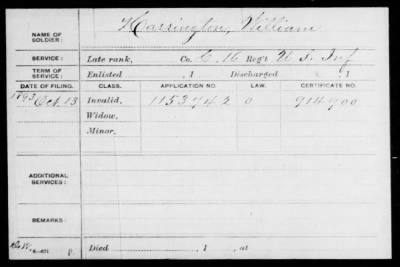 NAME OF SOLDIER: Harrington, William
SERVICE: Late rank, Co. C, 16 Reg't U. S. Inf
TERM OF SERVICE: Enlisted , 1 Discharged , 1
DATE OF FILING. CLASS. APPLICATION NO. LAW. CERTIFICATE NO.
1893 Oct. 13 Invalid. 1153742 0 914900
Widow.
Minor.
ADDITIONAL SERVICES:
REMARKS:
Died , 1 , at